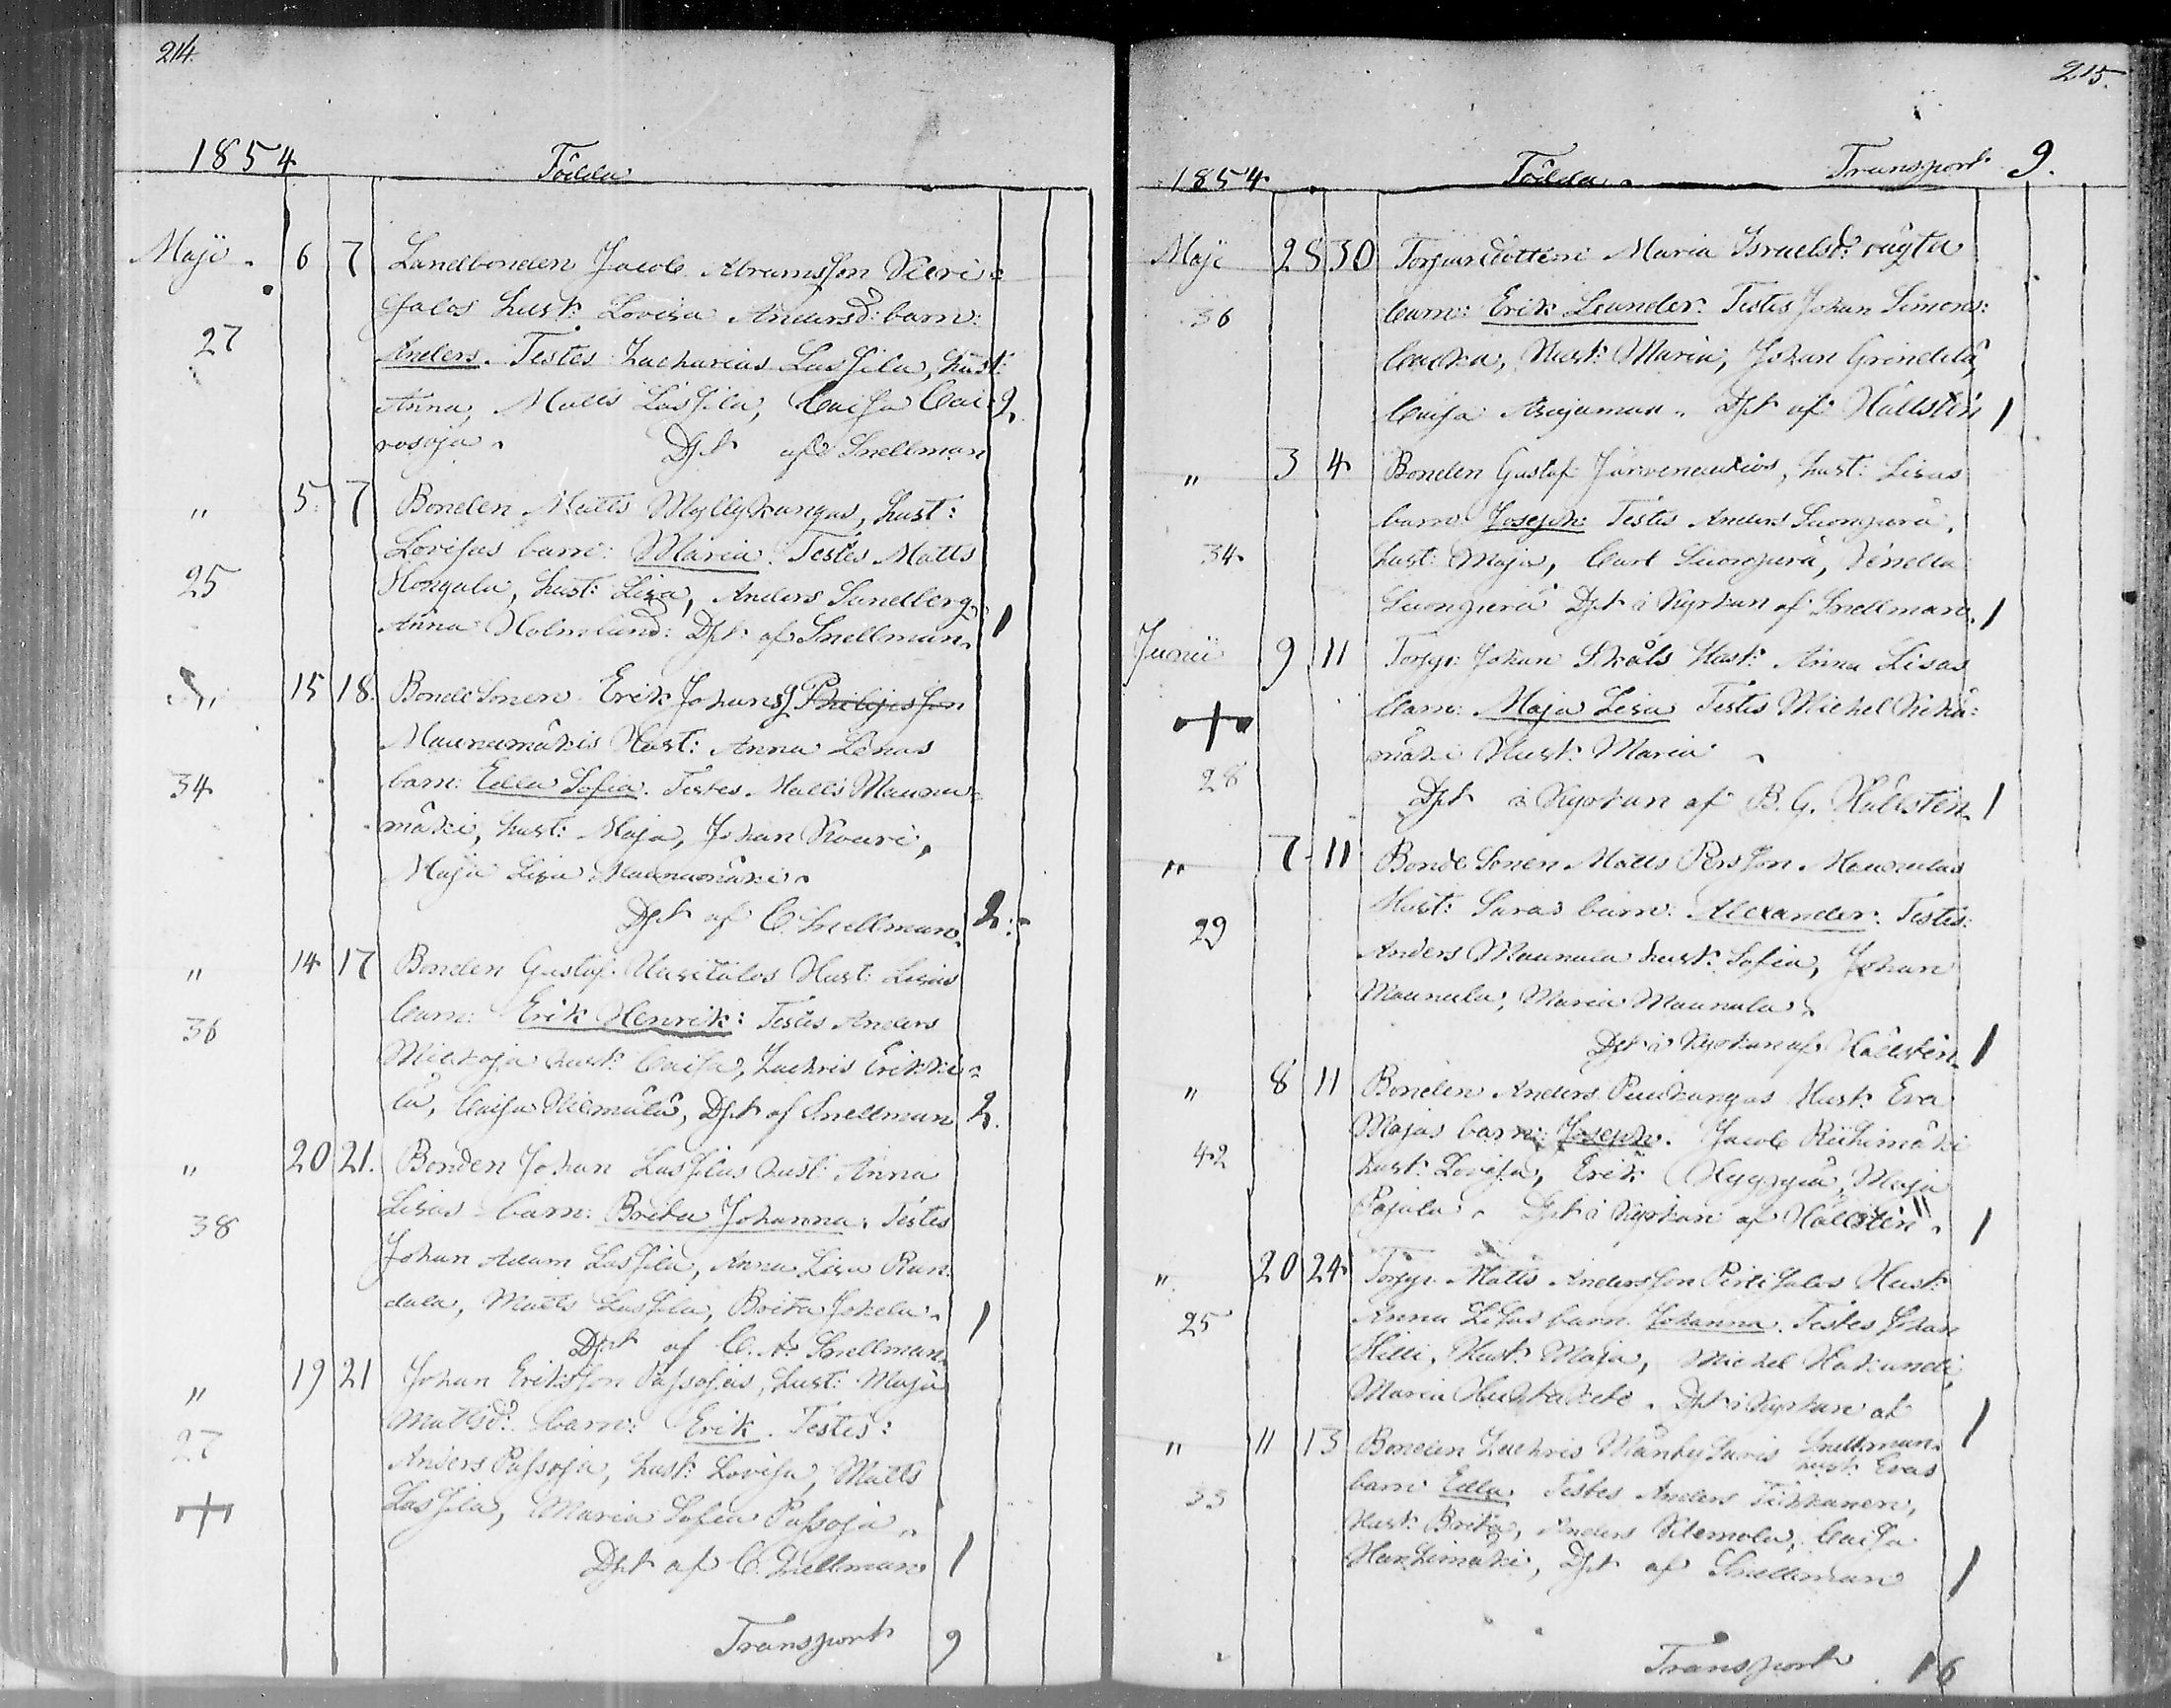 214.
1854 Födda
Maji 6 7 Landbonden Jacob Abramsson Kieri-
salos hust: Lovisa Andersd: barn:
27 Anders. Testes Zacharias Lassila, hust:
Anna, Matts Lassila, Caisa Cai- 2.
rosoja. Dpt af C Snellman
" 5. 7 Bonden Matts Myllykangas, hust:
Lovisas barn: Maria. Testes Matts
25 Hongala, hust: Lisa, Anders Sundberg,
Anna Holmlund: Dpt af Snellman. 1
15 18. Bonde Sonen Erik Johanss Philipsson
Maunumäkis Hust: Anna Lenas
34 barn: Edla Sofia. Testes Matts Maunu-
mäki, hust: Maja, Johan Kouri,
Maja Lisa Maunumäki.
Dpt af C. Snellman. 2.
" 14 17 Bonden Gustaf Uusitalos Hust: Lisas
36 barn: Erik Henrik: Testes Anders
hust: Caisa, Zachris Erikki-
lä, Caisa Dpt af Snellman 2.
" 20 21. Bonden Johan Lassilas hust: Anna
38 Lisas barn: Brita Johanna. Testes
Johan Adam Lassila, Anna Lisa Ran-
dala, Matts Lassila, Brita Jokela. 1
Dpt af C. A. Snellman.
" 19 21 Johan Eriksson Passojas, hust: Maja
27 Mattsd: barn: Erik. Testes:
Anders Passoja, hust: Lovisa, Matts
+ Lassila, Maria Sofia Passoja.
Dpt af C. Snellman 1
Transport 9
215.
1854. Födda. Transport 9.
Maji 28 30 Torpardottern Maria Israelsd: oägta
36 barn: Erik Leander. Testes Johan Simons:
backa, Hust: Maria, Johan Grindilä,
Caisa Dpt af Hällsten 1
" 3 4 Bonden Gustaf hust: Lisas
barn: Joseph: Testes Anders Suonperä,
34. hust: Maja, Carl Suonperä,
Suonperä Dpt i Kyrkan af Snellman. 1
Junii 9 11 Torpr: Johan Skåls Hust: Anna Lisas
+ barn: Maja Lisa Testes Michel
28 mäki Hust: Maria
Dpt i Kyrkan af B. G. Hällsten. 1
" 7 11 Bonde Sonen Matts Persson Maunulas
29 Hust: Saras barn: Alexander. Testes:
Anders Maunula hust: Sofia, Johan
Maunula, Maria Maunula.
Dpt i Kyrkan af Hällsten. 1
" 8 11 Bonden Anders Puukangas Hust: Eva
42 Majas barn: Joseph. Jacob Riihimäki
hust: Lovisa, Erik Hyyppä, Maja
Pajala. Dpt i Kyrkan af Hällsten. 1
" 20 24 Torpr: Matts Andersson Pertsalos Hust:
25 Anna Lisas barn Johanna. Testes Johan
Hilli, Hust: Maja, Michel Hakunti
Maria Dpt i Kyrkan af 1
" 11 13 Bonden Zachris Snellman.
hust: Evas
33 barn Edla. Testes Anders Tikkanen,
Hust: Brita, Anders Caisa
Dpt af Snellman 1
Transport 16